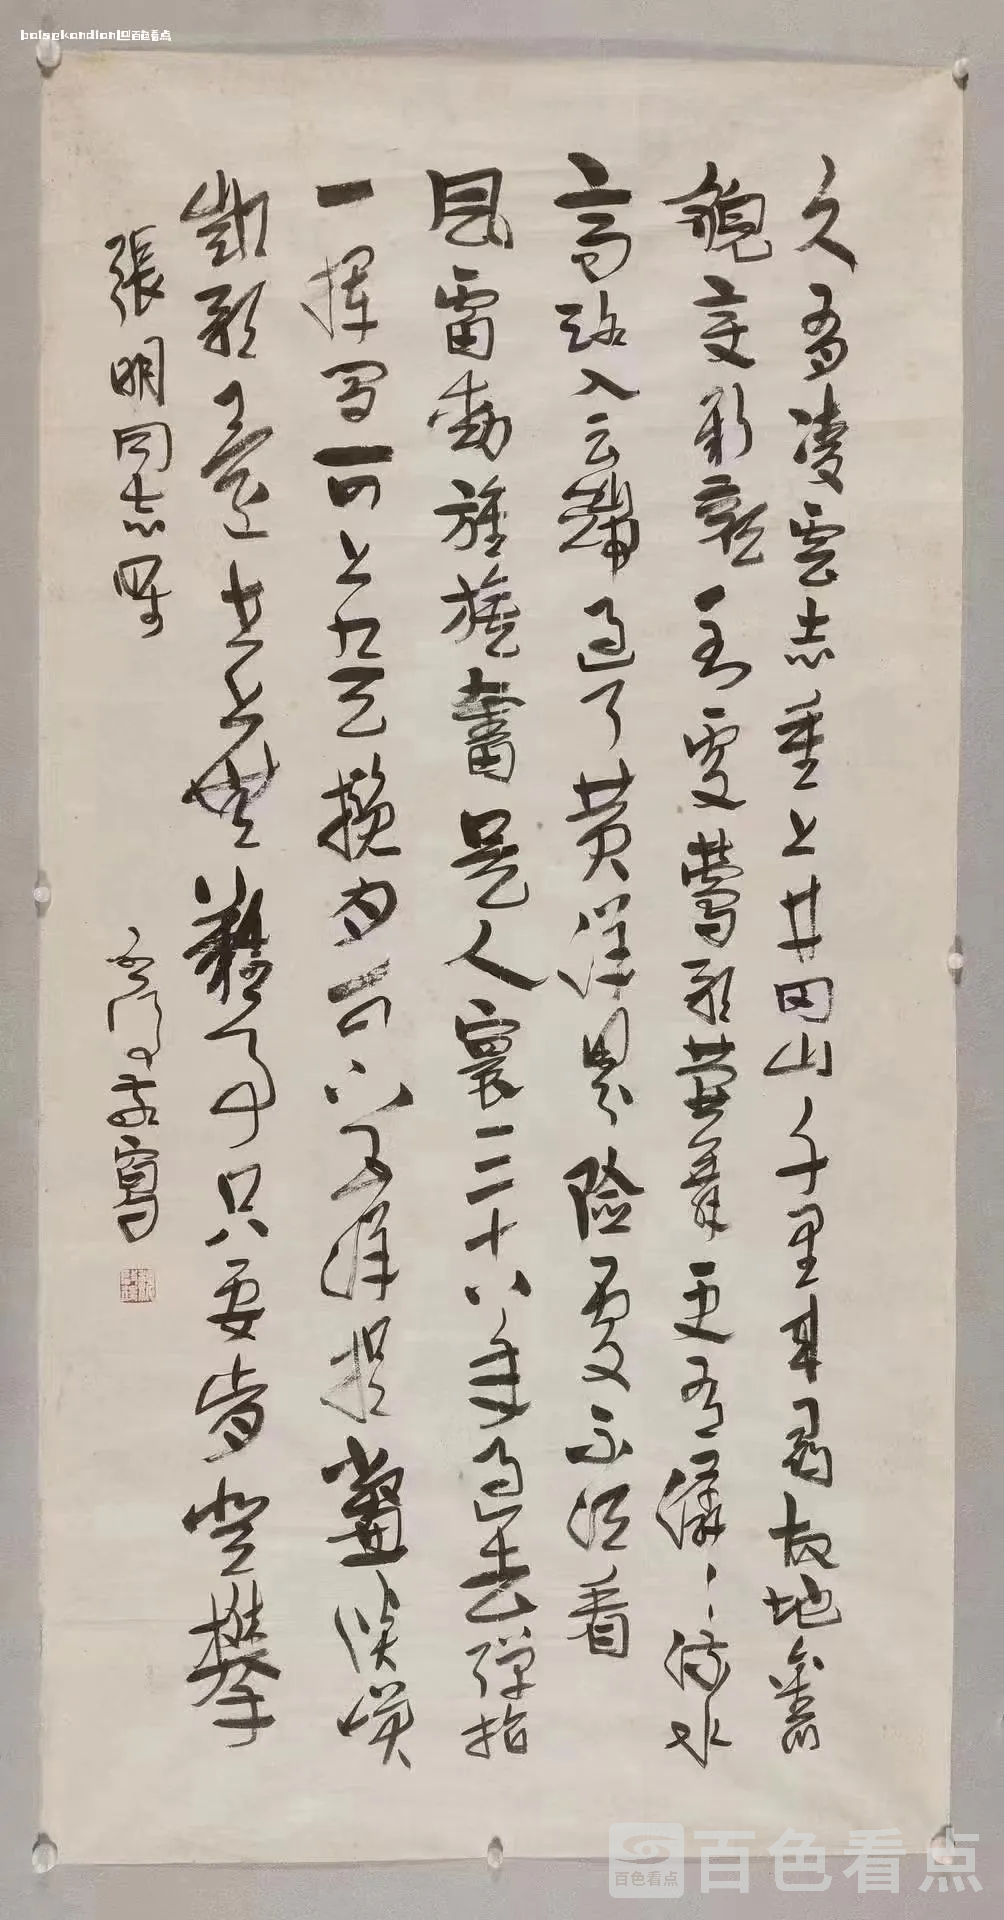 baisekandian@百色看点
久有凌雲志重上井冈山千里来尋故地舊
貌变新颜到處莺歌燕舞更有潺々流水
高路入云端过了黄洋界险處不须看
风雷動旌旗奮是人寰三十八年过去弹指
一挥间可上九天揽月可下五洋捉鳖谈笑
凯歌还世上無難事只要肯登攀
張明同志嘱
寫
百色看点
百色看点